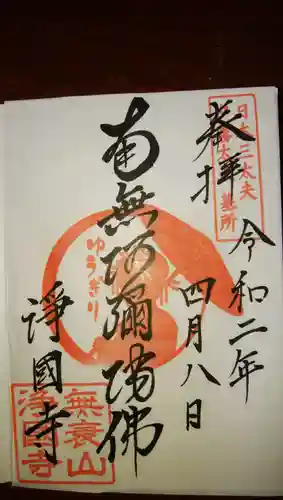 日本三太夫
夕霧太夫墓所
奉拝
令和二年
四月八日
南無阿彌陀佛
ゆうぎり
淨國寺
無衰山
淨國寺